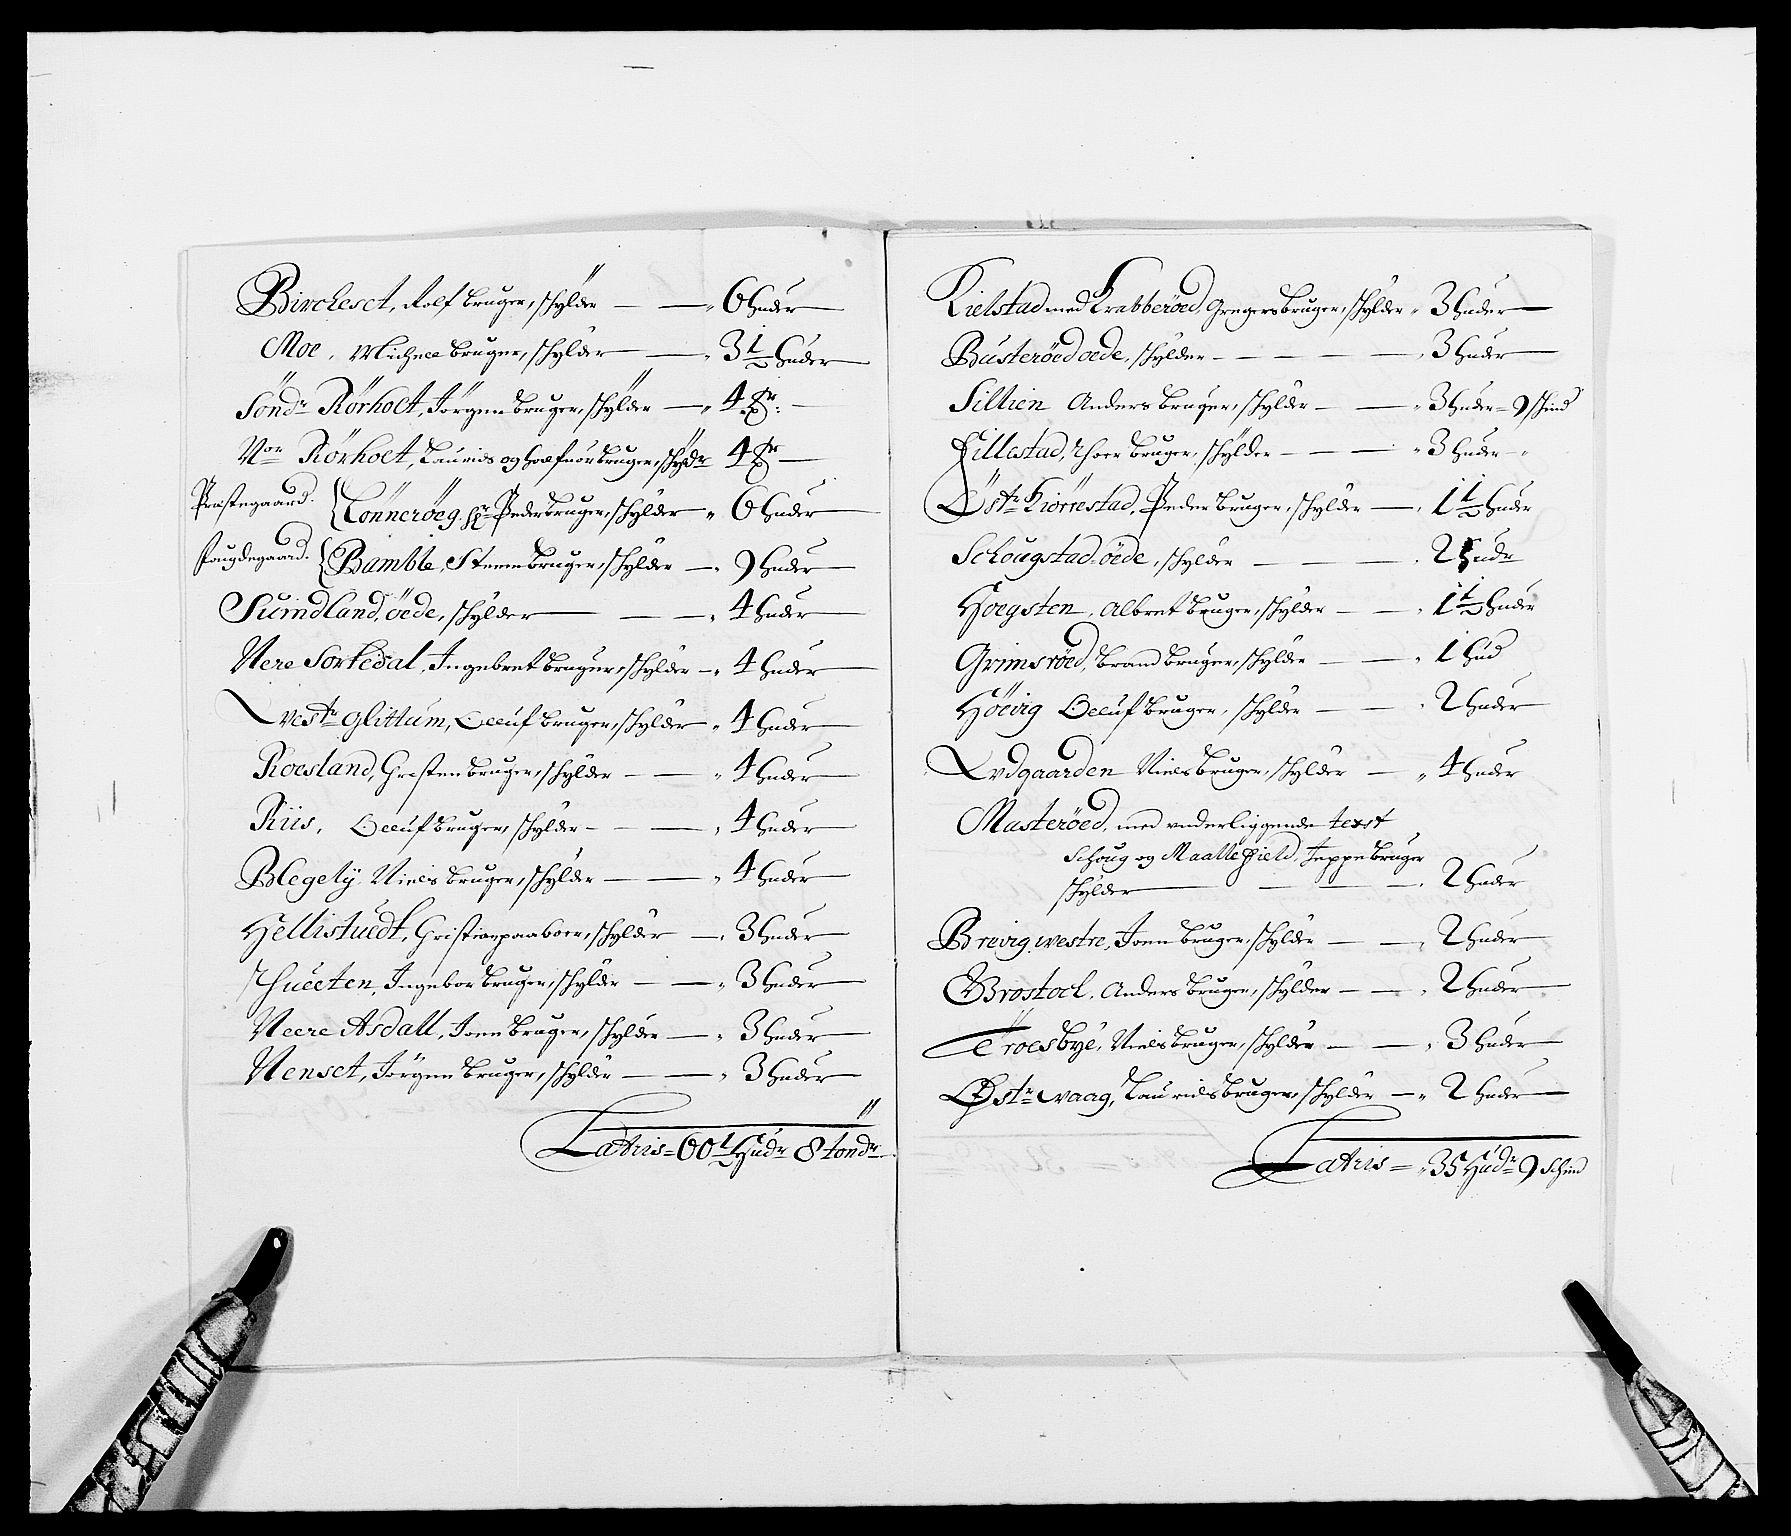 Bircheset, Rolf bruger, schylder — — „ 6 huder
Moe, Michuel bruger, schylder — — „ 3½ huder
Söndr Rörholt, Jörgen bruger, schylder — „ 4 tr: —
Nor Rörholt, Laurids og bruger, schyldr 4 tr —
Præstegaard. Tönneröeg. hr Peder bruger, schylder „ 6 huder
Bamble, Steen bruger, schylder — „ 9 huder
Suindland, öede, schylder — — „ 4 huder
Nere Sortedal, Ingebret bruger, schylder — „ 4 huder
vestr Glittum, Oeluf bruger, schylder „ 4 huder
Roesland, Gresten bruger, schylder — — „ 4 huder
Riis, Oeluf bruger, schylder — — „ 4 huder
Blegely, Niels bruger, schylder — — „ 4 huder
Hellistuedt, Cristian paaboer, schylder — „ 3 huder
Ingebor bruger, schylder — — „ 3 huder
Neere Asdall, Joen bruger, schylder — „ 3 huder
Nenset, Jörgen bruger, schylder — — „ 3 huder
Latris = 60½ Hudr 8 tondr
Kielstad med Krabberöed, Gregers bruger, schylder „ 3 huder
Busteröed oede, schylder — — — — „ 3 huder
Sillien Anders bruger, schylder — — „ 3 huder = 9 schind
Fillestad, Thoer bruger, schylder — — — „ 3 huder „
Östr Kiörrestad, Peder bruger, schylder — „ 1½ huder
Schougstad öede, schylder — — — „ 2 hudr
Hoegsten, Albret bruger, schylder — — „ 1½ huder
Grimsröed, brand bruger, schylder — — „ 1 hud
Höevig Oeluf bruger, schylder — — „ 2 huder
Ovdgaarden Niels bruger, schylder — „ 4 huder
Musteröed, med underliggende
Schoug og Maallefield, Jeppe bruger
schylder — — — „ 2 huder
Brevig westre, Joen bruger, schylder — — „ 2 huder
Brostoel, Anders bruger, schylder — — „ 2 huder
Troesbye, Niels bruger, schylder — — „ 3 huder
Østr waag, Laurids bruger, schylder — „ 2 huder
Latris = „ 35 Hudr 9 Schind